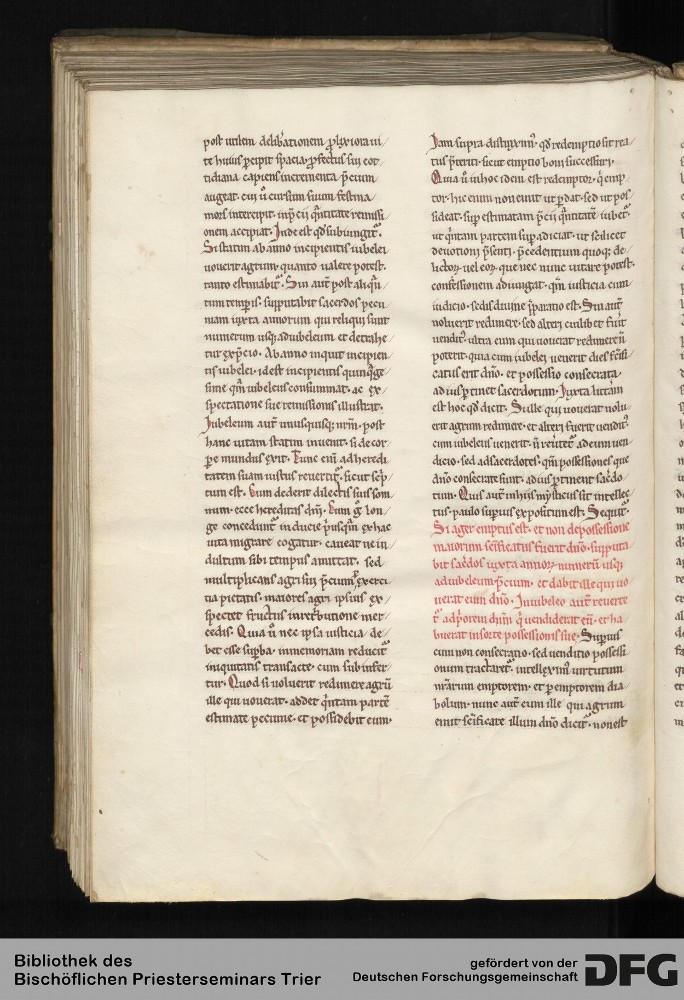 post utilem deliƀationem ꝓlixiora ui
te huius ꝑcipit spacia, ꝓfectus sui cot
tidiana capiens incrementa p̄cium
augeat. cui ũ cursum suum festina
mors intercipit
onem accipiat. Inde est qd̓ subiungit᷑.
Si statim ab anno incipientis iubelei
uouerit agrum. quanto ualere potest.
tanto estimabit᷑. Sin aut̄ post aliqñ
tum temꝑis. supputabit sacerdos pecu
niam iuxta annorum qui reliqui sunt
numerum usq; ad iubeleum et detrahe
tur ex p̄cio. Ab anno inquit incipien
tis iubelei. id est incipientis quinq̄ge
sime qm̄ iubeleus consummat. ac ex
spectatione sue remissionis illustrat.
Iubeleum aut̄ unusquisq; nr̄m. post
hanc uitam statim inuenit. si de cor
ꝑe mundus exit. Tunc eni᷑ ad heredi
tatem suam iustus reuertit᷑. sicut sc̓p
tum est. Cum dederit dilectis suis som
num. ecce hereditas dn̄i. Cum g̊ lon
ge concedunt᷑ inducie p̓usqm̄ ex hac
uita migrare cogatur. caueat ne in
dultum sibi tempus amittat. sed
multiplicans agri sui p̄cium ꝑ exerci
tia pietatis. maiores agri ipsius ex
spectet fructus in ret̓butione mer
cedis. Quia ũ nec ipsa iusticia de
bet esse suꝑba. in memoriam reducit᷑
iniquitatis transacte. cum subinfer
tur. Quod si uoluerit redimere agrū
ille qui uouerat. addet q̓ntam partē
estimate pecunie. et possidebit eum.
Iam supra distinxim᷒. qd̓ redemptio sit rea
tus p̄teriti. sicut emptio boni successiri.
Quia ũ in hoc idem est redemptor. q̓ emp
tor. hic enim non emit ut ꝑdat. sed ut pos
sideat. suꝑ estimatam p̄cii q̄ntitatē iubet᷑.
ut q̓ntam partem suꝑadiciat. ut scilicet
deuotioni p̄senti. p̄cedentium quoq; de
lictoꝝ uel eoꝝ que nec nunc uitare potest.
confessionem adiungat. qm̄ iusticia cum
iudicio. sedis diuine p̄paratio est. Sin aut̄
noluerit redimere. sed alteri cuilibet fũit
uenditᷣ. ultra eum qui uouerat redimere ñ
poterit. quia cum iubelei uenerit dies sc̄ifi
catus erit dn̄o. et possessio consecrata
ad ius ꝑtinet sacerdotum. Iuxta litt̓am
est hoc qd̓ dicit. Si ille qui uouerat nolu
erit agrum redimere. et alteri fuerit uendit᷒.
cum iubeleus uenerit. ñ reuertet᷑ ad eum uen
dicio. sed ad sacerdotes. qm̄ possessiones que
dn̄o consecrate sunt. ad ius ꝑtinent sac̓do
tum. Quis aut̄ in hiis mysticus sit intellec
tus. paulo suꝑius expositum est. Sequit᷑.
Si ager emptus est. et non de possessione
maiorum sc̄ificatus fuerit dn̄o. supputa
bit sac̓dos iuxta annoꝝ numerū usq;
ad iubeleum p̄cium. et dabit ille qui uo
uerat eum dn̄o. In iubeleo aut̄ reuerte
t᷑ ad p̓orem dn̄m q̓ uendiderat eū. et ha
buerat in sorte possessionis sue. Suꝑius
cum non consecratio. sed uenditio possessi
onum tractaret᷑. intelleximᷣ uirtutum
nr̄arum emptorem. et ꝑemptorem dia
bolum. nunc aut̄ cum ille qui agrum
emit sc̄ificare illum dn̄o dicit᷑. non est
Bibliothek des
Bischöflichen Priesterseminars Trier
gefördert von der
Deutschen Forschungsgemeinschaft
DFG